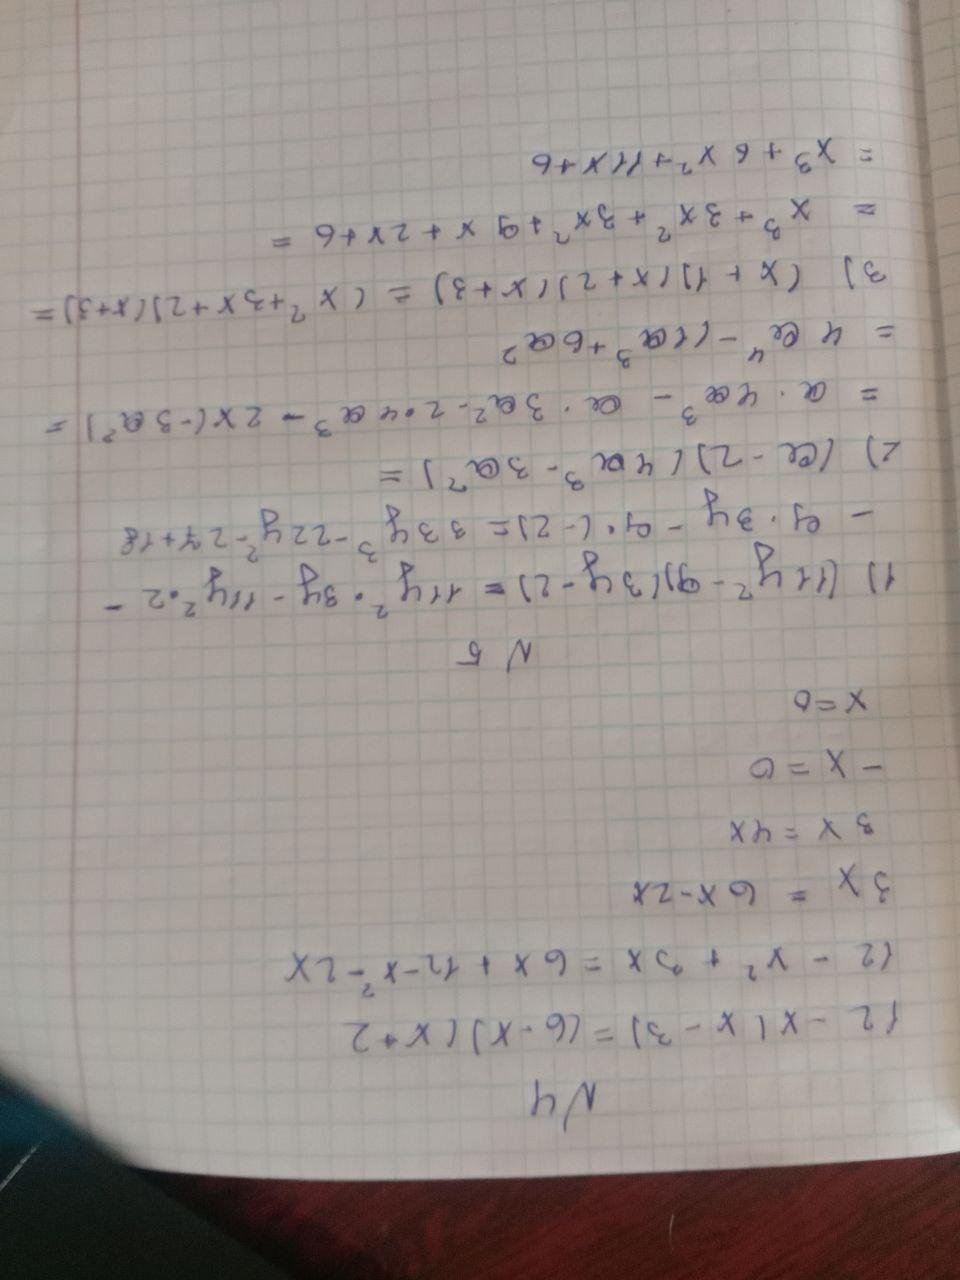 N4
12 - x(x - 3) = (6 - x)(x + 2
12 - x² + 3x = 6x + 12 - x² - 2x
3x = 6x - 2x
3x = 4x
- x = 0
x = 0
N 5
1) (11y² - 9)(3y - 2) = 11y² · 3y - 11y² · 2 -
- 9 · 3y - 9 · (-2) = 33y³ - 22y² - 27 + 18
2) (a - 2)(4a³ - 3a²) =
= a · 4a³ - a · 3a² - 2 · 4a³ - 2x(-3a²) =
= 4a⁴ - 11a³ + 6a²
3) (x + 1)(x + 2)(x + 3) = (x² + 3x + 2)(x + 3) =
= x³ + 3x² + 3x² + 9x + 2x + 6 =
= x³ + 6x² + 11x + 6